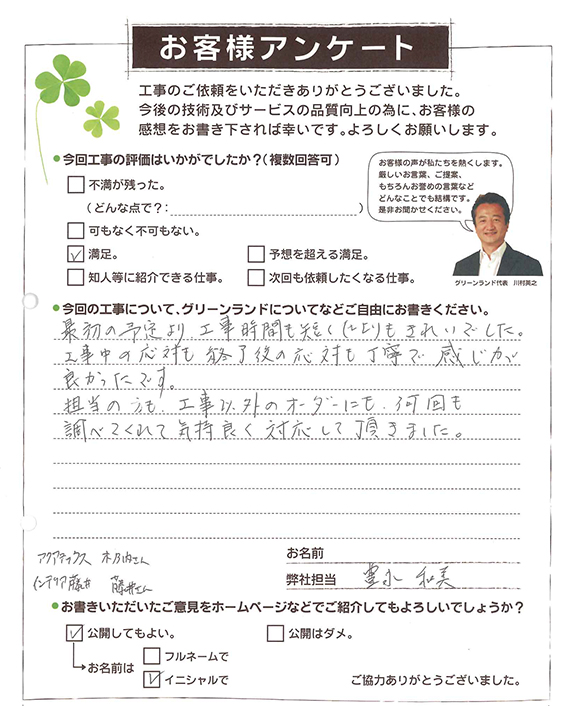 お客様アンケート
工事のご依頼をいただきありがとうございました。
今後の技術及びサービスの品質向上の為に、お客様の
感想をお書き下されば幸いです。よろしくお願いします。
●今回工事の評価はいかがでしたか？（複数回答可）
お客様の声が私たちを熱くします。
厳しいお言葉、ご提案、
もちろんお誉めの言葉など
どんなことでも結構です。
是非お聞かせください。
グリーンランド代表 川村英之
不満が残った。
（どんな点で？：）
可もなく不可もない。
満足。
予想を超える満足。
知人等に紹介できる仕事。
次回も依頼したくなる仕事。
●今回の工事について、グリーンランドについてなどご自由にお書きください。
最初の予定より工事時間も短く仕上りもきれいでした。
工事中の応対も終了後の応対も丁寧で感じが
良かったです。
担当の方も、工事以外のオーダーにも、何回も
調べてくれて気持良く対応して頂きました。
アクアテックス 木乃内さん
インテリア藤井 藤井さん
お名前
弊社担当 豊永 和美
●お書きいただいたご意見をホームページなどでご紹介してもよろしいでしょうか？
公開してもよい。
公開はダメ。
お名前は
フルネームで
イニシャルで
ご協力ありがとうございました。